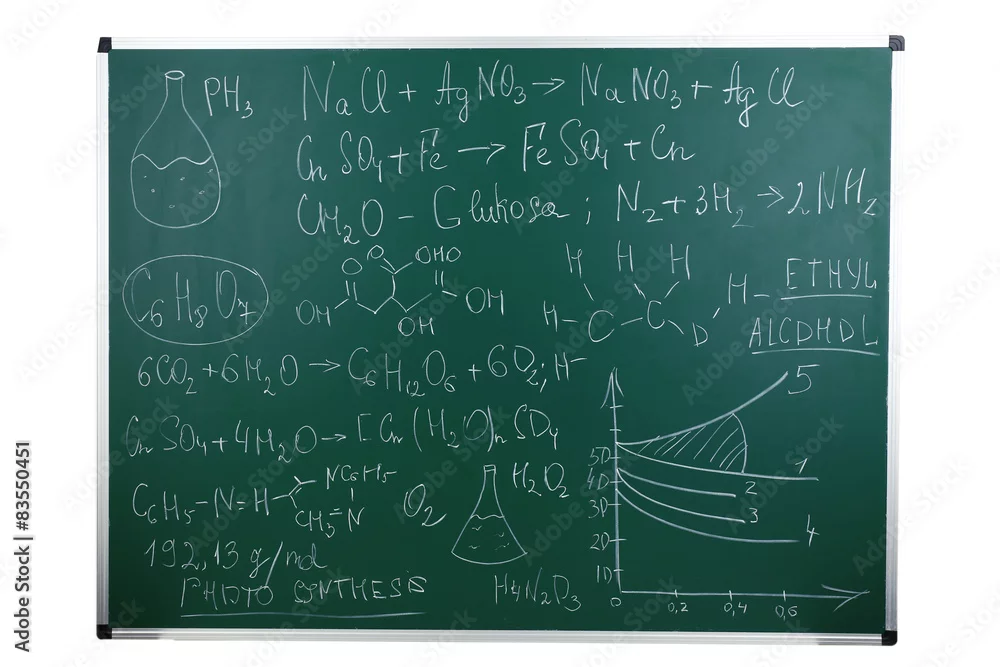 PH₃
NaCl + AgNO₃ → NaNO₃ + AgCl
Cn SO₄ + Fe → FeSO₄ + Cn
CH₂O - Glukosa ; N₂ + 3H₂ → 2NH₂
C₆H₈O₇
O O OHO
OH OH
OH
H H H
H - C - C - D H - ETHYL
ALCDHDL
6CO₂ + 6H₂O → C₆H₁₂O₆ + 6O₂; H-
Cn SO₄ + 4H₂O → [Cn (H₂O)n SD₄
C₆H₅-N=H
NC₆H₅-
CH₃=N
O₂
H₂O₂
192,13 g/md
PHDTO SYNTHESIS
H₄N₂D₃
5
1
2
3
4
5D
4D
3D
2D
1D
0 0,2 0,4 0,6
Adobe Stock | #83550451